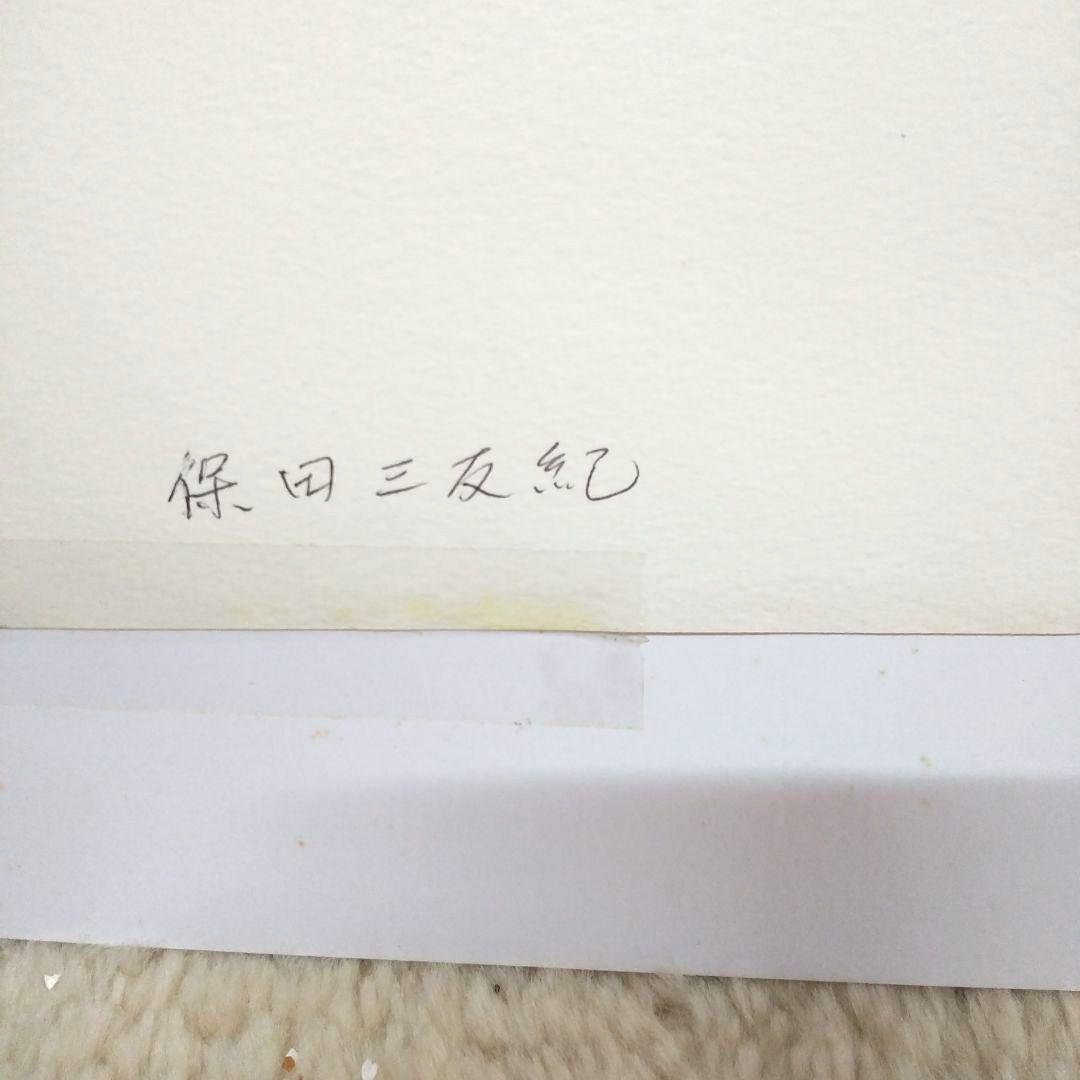 保田三友紀